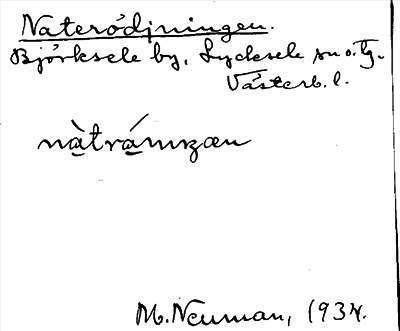 Naterödjningen.
Björksele by, Lycksele sn o. Tg.
Västerb. l.
M. Neuman, 1934.